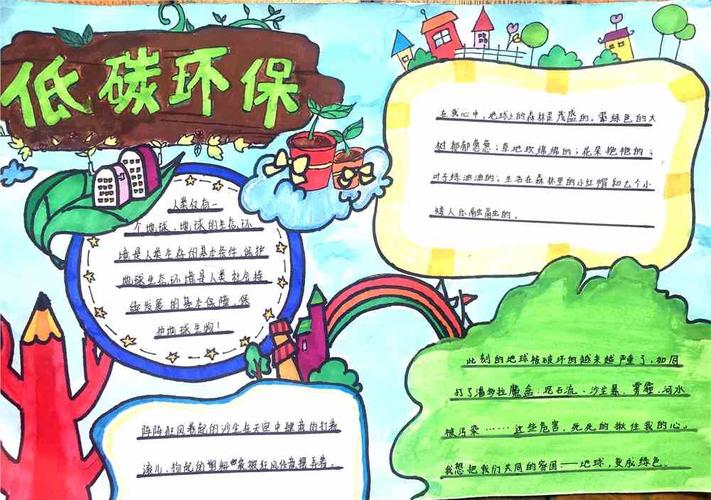 低碳环保
人类仅有一
个地球,地球的生态环
境是人类生存的基本条件,保护
地球生态环境是人类社会持
续发展的基本保障,保
护地球生物!
在我心中,地球上的森林是茂盛的,墨绿色的大
树郁郁葱葱;草地软绵绵的;花朵艳艳的;
叶子绿油油的;生活在森林里的小红帽和七个小
矮人乐融融的。
阵阵狂风卷起的沙尘在天空中肆意的打着
滚儿,扬起的塑料袋被狂风任意摆弄着。
此刻的地球被破坏的越来越严重了,如同
打了潘多拉魔盒:泥石流、沙尘暴、雾霾、河水
被污染……这些危害,死死的揪住我的心。
我想把我们共同的家园——地球,变成绿色。